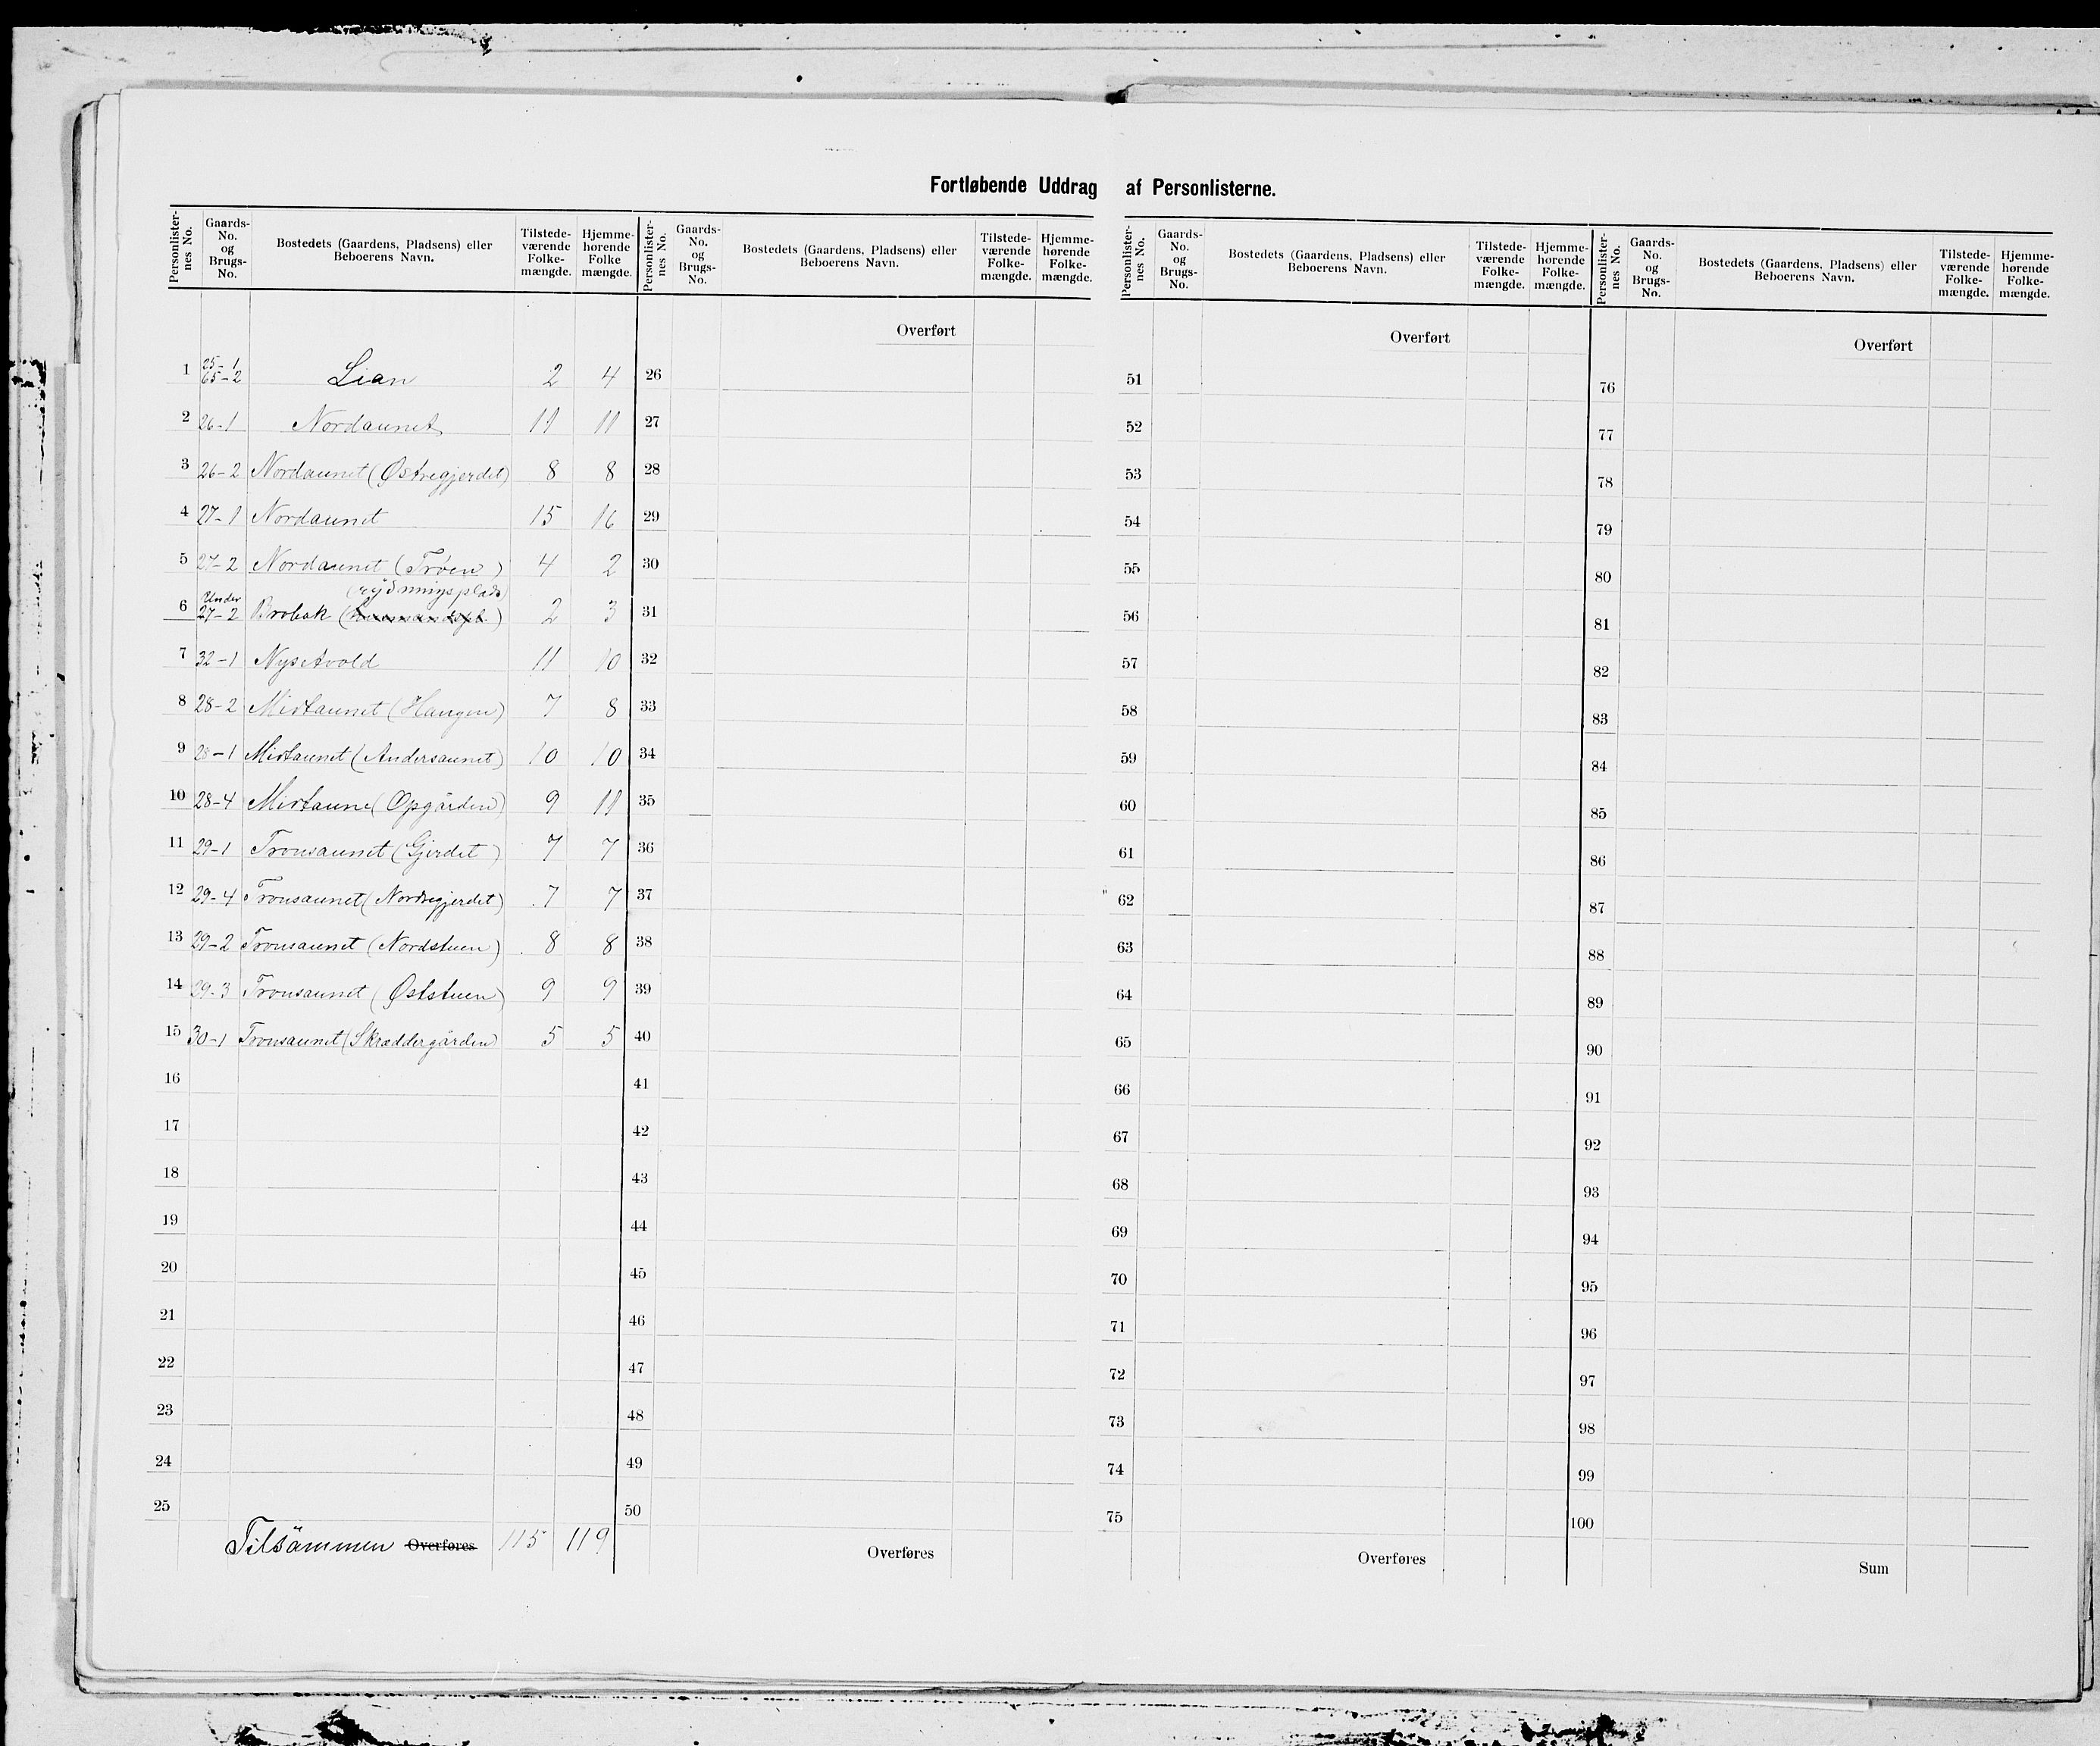 Fortløbende Uddrag af Personlisterne.
Personlister-nes No. Gaards-No. og Brugs-No. Bostedets (Gaardens, Pladsens) eller Beboerens Navn. Tilstede-værende Folke-mængde. Hjemme-hørende Folke mængde.
1 25-1 65-2 Lian 2 4
2 26-1 Nordaunet 11 11
3 26-2 Nordaunet (Østregjerdet) 8 8
4 27-1 Nordaunet 15 16
5 27-2 Nordaunet (Trøen) 4 2
(rydningsplads)
6 Under 27-2 Brobak 2 3
7 32-1 Nysetvold 11 10
8 28-2 Mistaunet (Haugen) 7 8
9 28-1 Mistaunet (Andersaunet) 10 10
10 28-4 Mistaune (Opgården) 9 11
11 29-1 Tronsaunet (Gjerdet) 7 7
12 29-4 Tronsaunet (Nordregjerdet) 7 7
13 29-2 Tronsaunet (Nordstuen) 8 8
14 29-3 Tronsaunet (Øststuen) 9 9
15 30-1 Tronsaunet (Skræddergården) 5 5
16
17
18
19
20
21
22
23
24
25
Tilsammen Overføres 115 119
Personlister-nes No. Gaards-No. og Brugs-No. Bostedets (Gaardens, Pladsens) eller Beboerens Navn. Tilstede-værende Folke-mængde. Hjemme-hørende Folke-mængde.
Overført
26
27
28
29
30
31
32
33
34
35
36
37
38
39
40
41
42
43
44
45
46
47
48
49
50
Overføres
Personlister-nes No. Gaards-No. og Brugs-No. Bostedets (Gaardens, Pladsens) eller Beboerens Navn. Tilstede-værende Folke-mængde. Hjemme-hørende Folke-mængde.
Overført
51
52
53
54
55
56
57
58
59
60
61
62
63
64
65
66
67
68
69
70
71
72
73
74
75
Overføres
Personlister-nes No. Gaards-No. og Brugs-No. Bostedets (Gaardens, Pladsens) eller Beboerens Navn. Tilstede-værende Folke-mængde. Hjemme-hørende Folke-mængde.
Overført
76
77
78
79
80
81
82
83
84
85
86
87
88
89
90
91
92
93
94
95
96
97
98
99
100
Sum